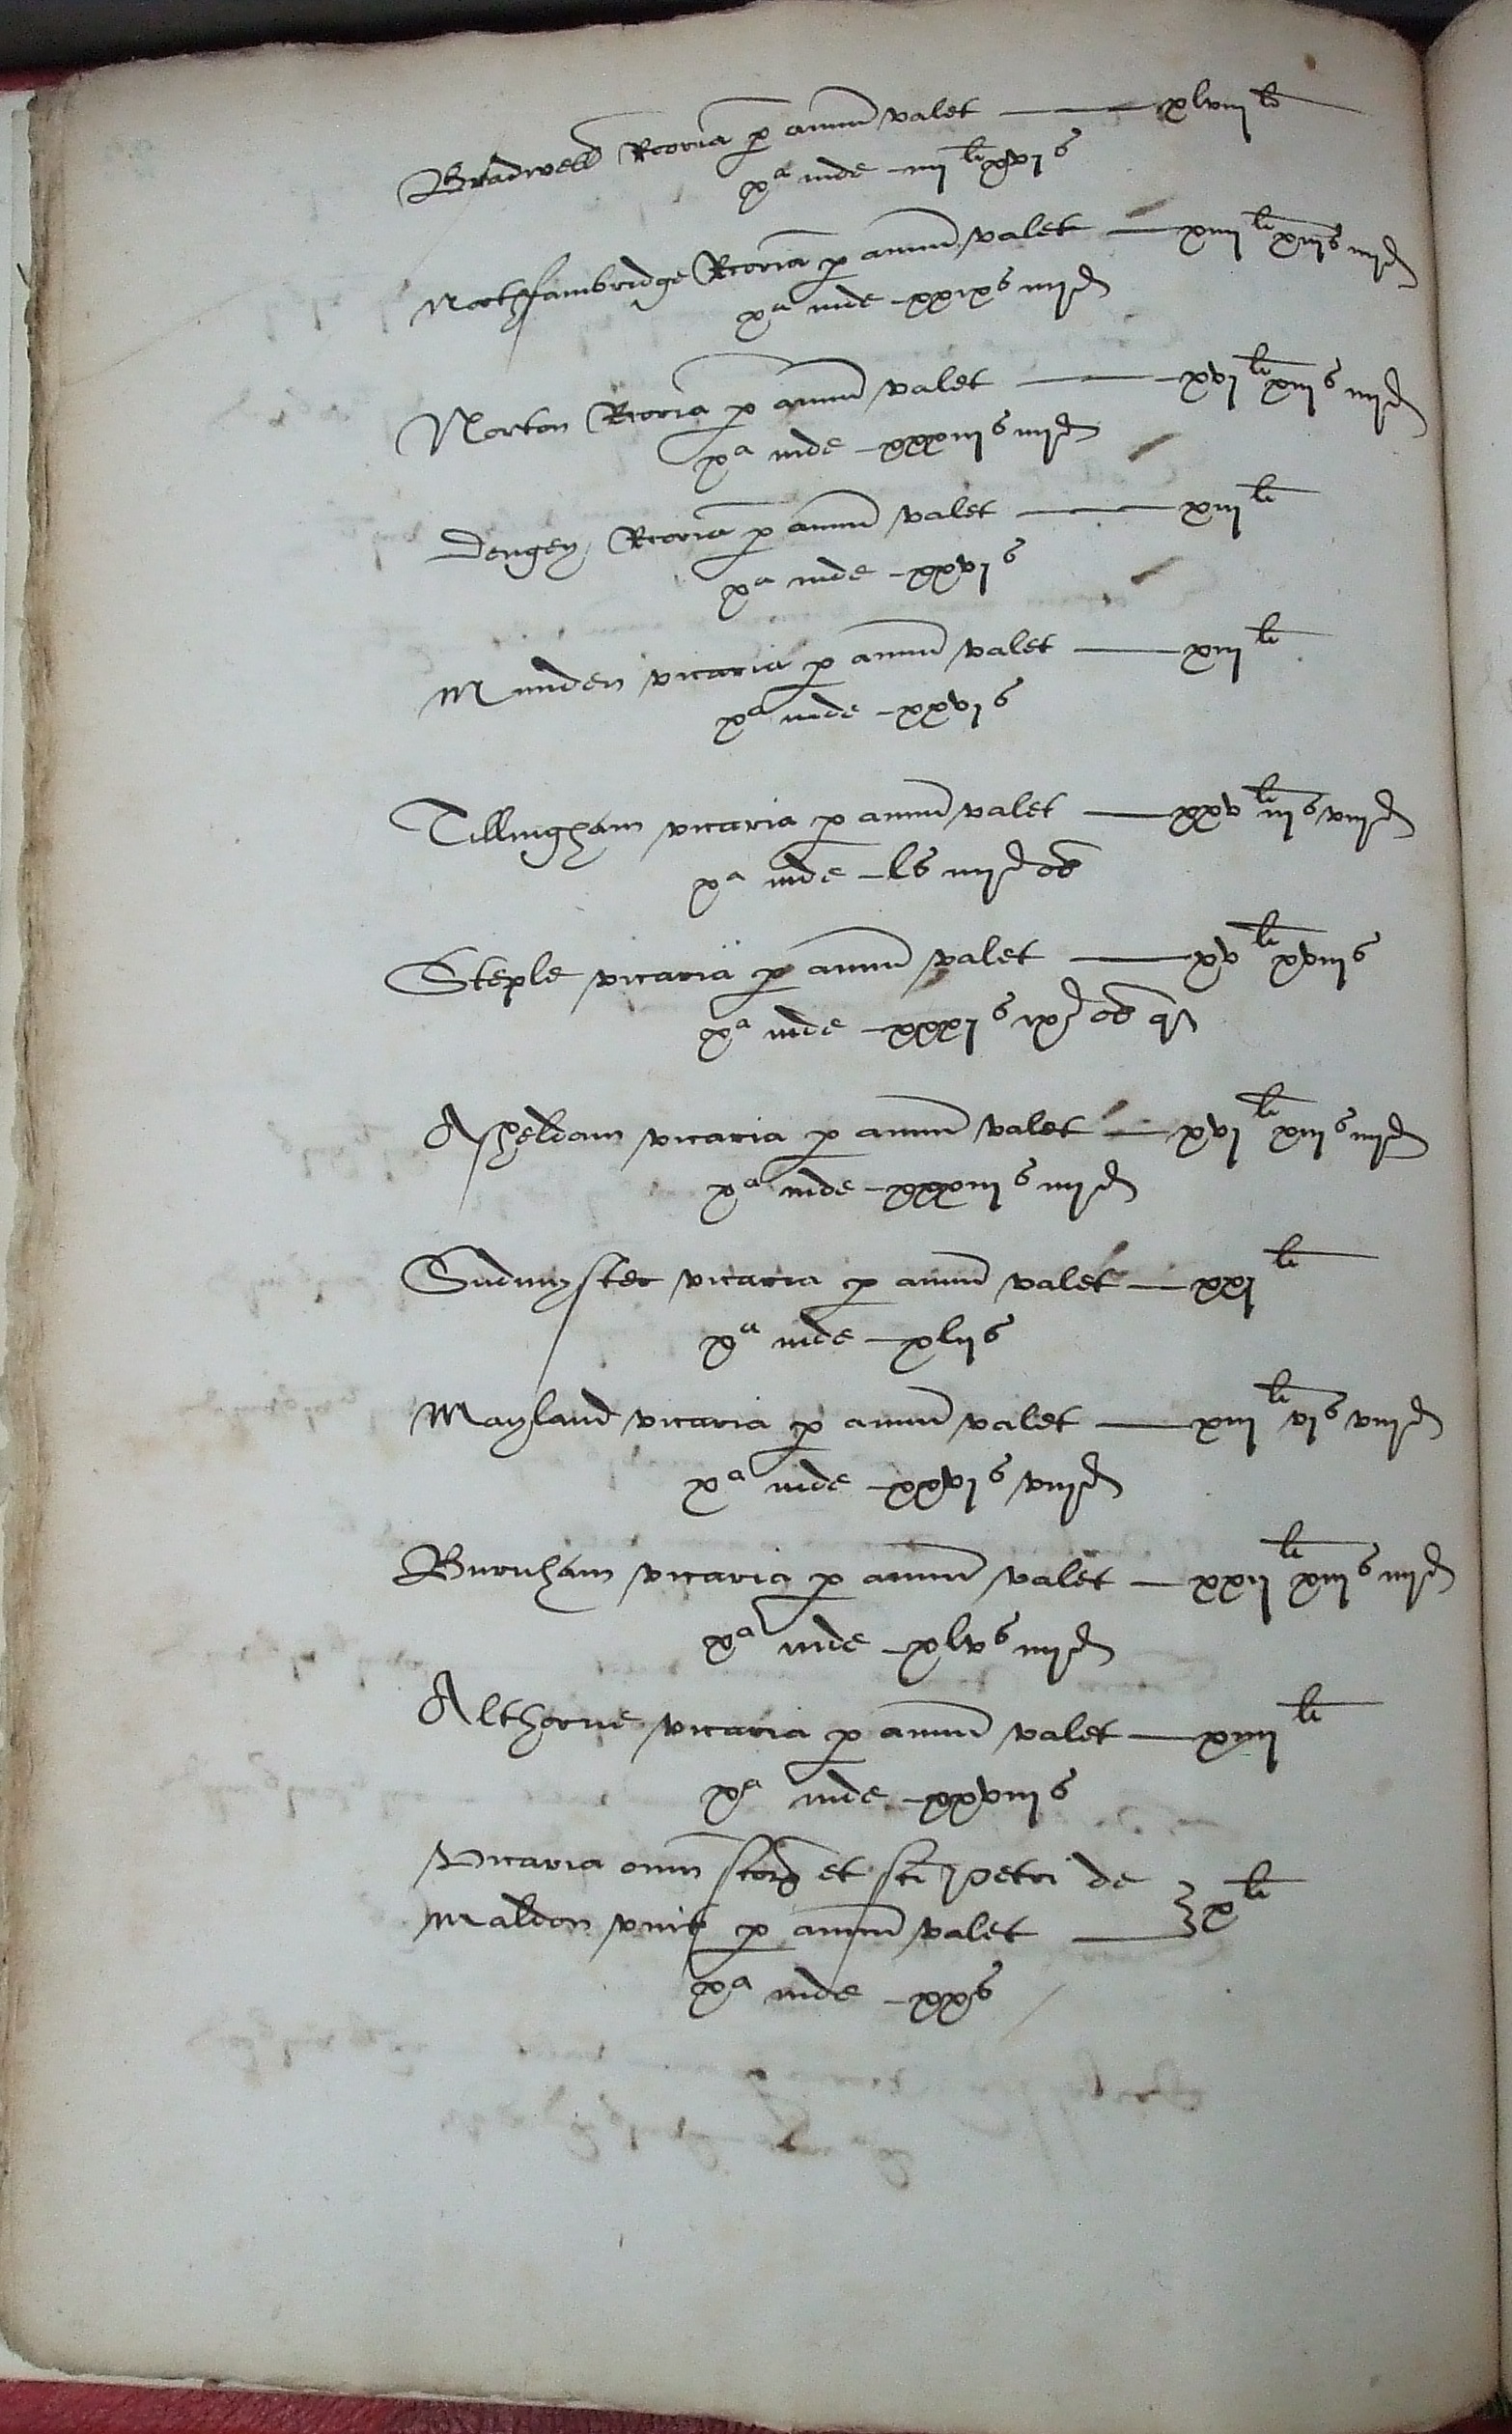 Bradwell Rcoria p annu valet — xlviij li
xa inde – iiij li xvj s
Northfambridge Rcoria p annu valet — xiiij li xiij s iiij d
xa inde – xxix s iiij d
Norton Rcoria p annu valet — xvj li xiij s iiij d
xa inde – xxxiij s iiij d
Dengey Rcoria p annu valet — xiij li
xa inde – xxvj s
Munden vicaria p annu valet — xiij li
xa inde – xxvj s
Tillingham vicaria p annu valet — xxv li iij s viij d
xa inde – l s iiij d ob
Steple vicaria p annu valet — xv li xviij s
xa inde – xxxj s ix d ob q
Asheldam vicaria p annu valet — xvj li xiij s iiij d
xa inde – xxxiij s iiij d
Sudmyster vicaria p annu valet — xxj li
xa inde – xlij s
Mayland vicaria p annu valet — xiij li vj s viij d
xa inde – xxvj s viij d
Burnham vicaria p annu valet — xxij li xiij s iiij d
xa inde – xlv s iiij d
Althorne vicaria p annu valet — xiiij li
xa inde – xxviij s
Vicaria omn scor et sci Petri de
Maldon unit p annu valet — } x li
xa inde – xx s